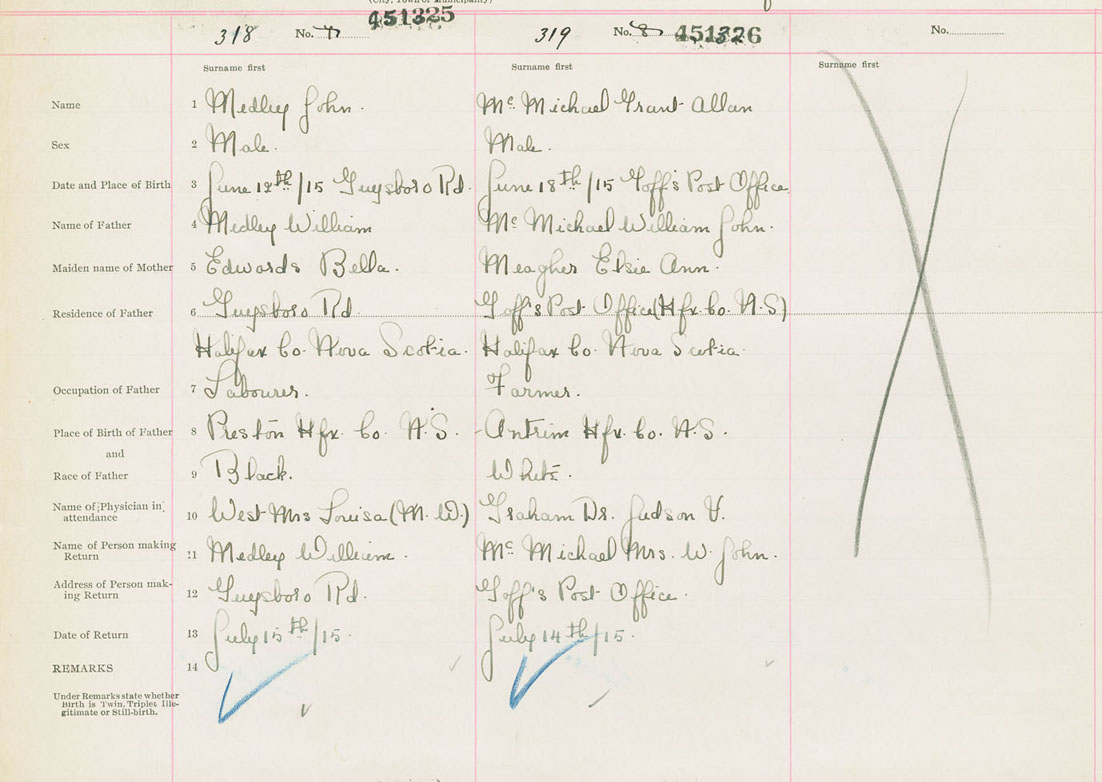 (City, Town or Municipality)
451325
318 No. 7
319 No. 8 451326
No.
Surname first Surname first Surname first
Name 1 Medley John. Mc Michael Grant Allan
Sex 2 Male. Male.
Date and Place of Birth 3 June 12th/15 Guysboro Rd. June 18th/15 Goff's Post Office
Name of Father 4 Medley William Mc Michael William John.
Maiden name of Mother 5 Edwards Bella. Meagher Elsie Ann.
Residence of Father 6 Guysboro Rd. Goff's Post Office (Hfx Co. N.S)
Halifax Co. Nova Scotia. Halifax Co. Nova Scotia.
Occupation of Father 7 Labourer. Farmer.
Place of Birth of Father 8 Preston Hfx. Co. N.S. Antrim Hfx. Co. N.S.
and
Race of Father 9 Black. White.
Name of Physician in
attendance 10 West Mrs Louisa (M.W.) Graham Dr. Judson V.
Name of Person making
Return 11 Medley William. Mc Michael Mrs. W. John.
Address of Person mak-
ing Return 12 Guysboro Rd. Goff's Post Office.
Date of Return 13 July 15th/15. July 14th/15.
REMARKS 14
Under Remarks state whether
Birth is Twin, Triplet, Ille-
gitimate or Still-birth.